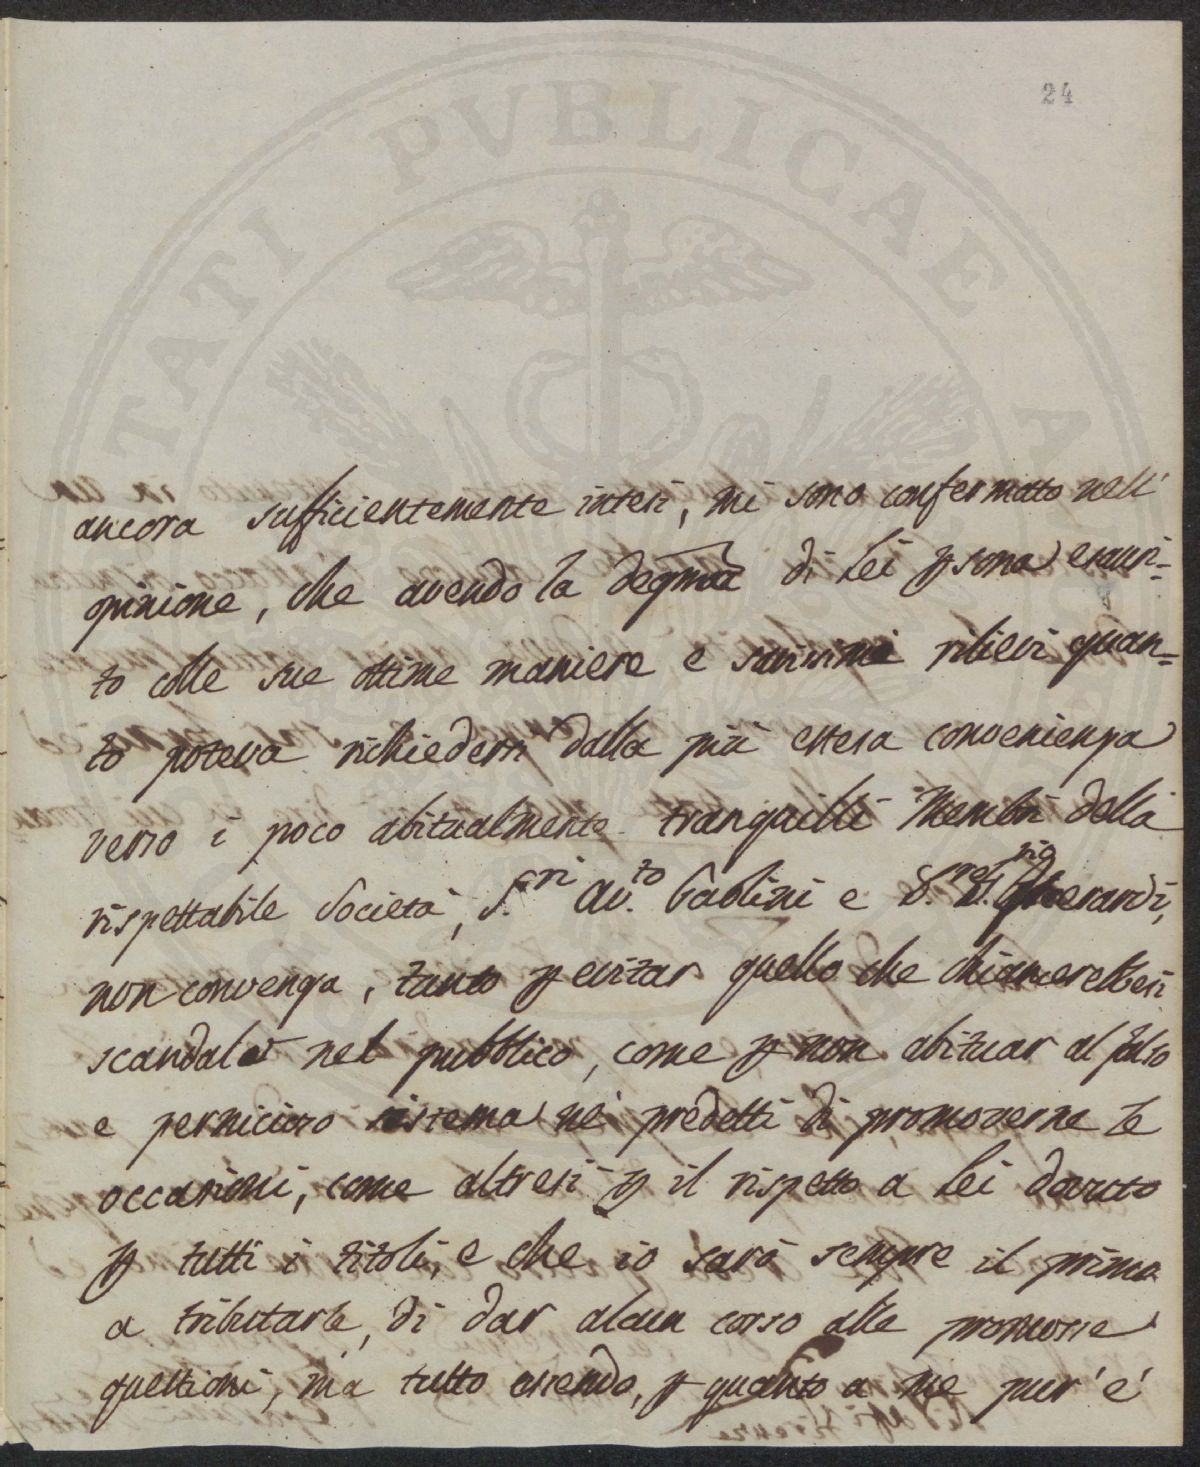 24
ancora sufficientemente intesi, mi sono confermato nell'
opinione, che avendo la degma di Lei psona esauri=
to colle sue ottime maniere e savissimi rilievi quan=
to poteva richiedersi dalla più estesa convenienza
verso i poco abitualmente tranquilli Membri della
rispettabile Società, S.ri Av.to Paolini e S.re
non convenga, tanto p evitar quello che chiamerebbesi
scandalo nel pubblico, come p non abituar al falso
e pernicioso sistema nei predetti di promoverne le
occasioni, come altresì p il rispetto a Lei dovuto
p tutti i titoli, e che io sarò sempre il primo
a tributarle, di dar alcun corso alle promosse
questioni, ma tutto essendo, p quanto a me pur'è